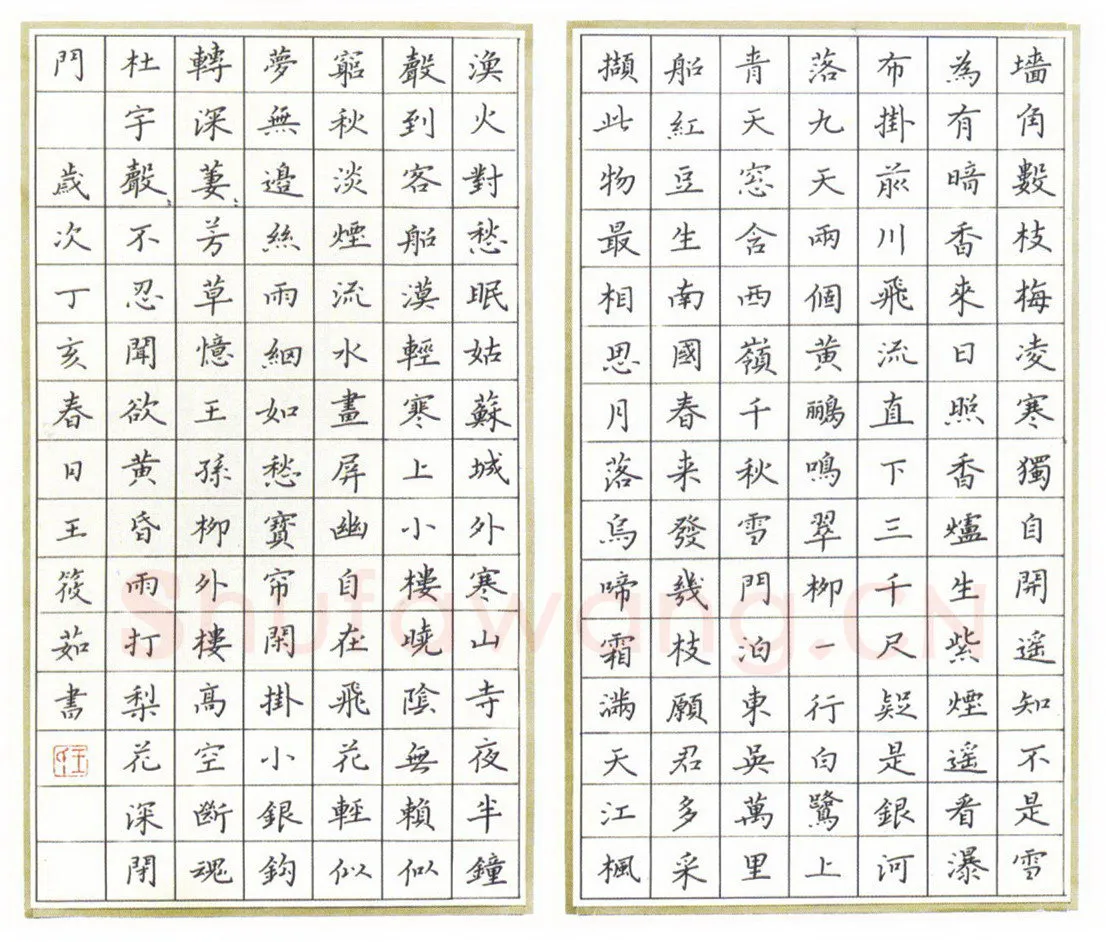 墻角數枝梅凌寒獨自開遥知不是雪
為有暗香來日照香爐生紫煙遥看瀑
布掛前川飛流直下三千尺疑是銀河
落九天兩個黄鸝鳴翠柳一行白鷺上
青天窓含西嶺千秋雪門泊東吳萬里
船紅豆生南國春来發幾枝願君多采
擷此物最相思月落烏啼霜滿天江楓
漁火對愁眠姑蘇城外寒山寺夜半鐘
聲到客船漠輕寒上小樓曉陰無賴似
窮秋淡煙流水畫屏幽自在飛花輕似
夢無邊絲雨細如愁寶帘閑掛小銀鈎
轉深萋〻芳草憶王孫柳外樓高空斷魂
杜宇聲〻不忍聞欲黄昏雨打梨花深閉
門 歲次丁亥春日王筱茹書
Shufawang.CN